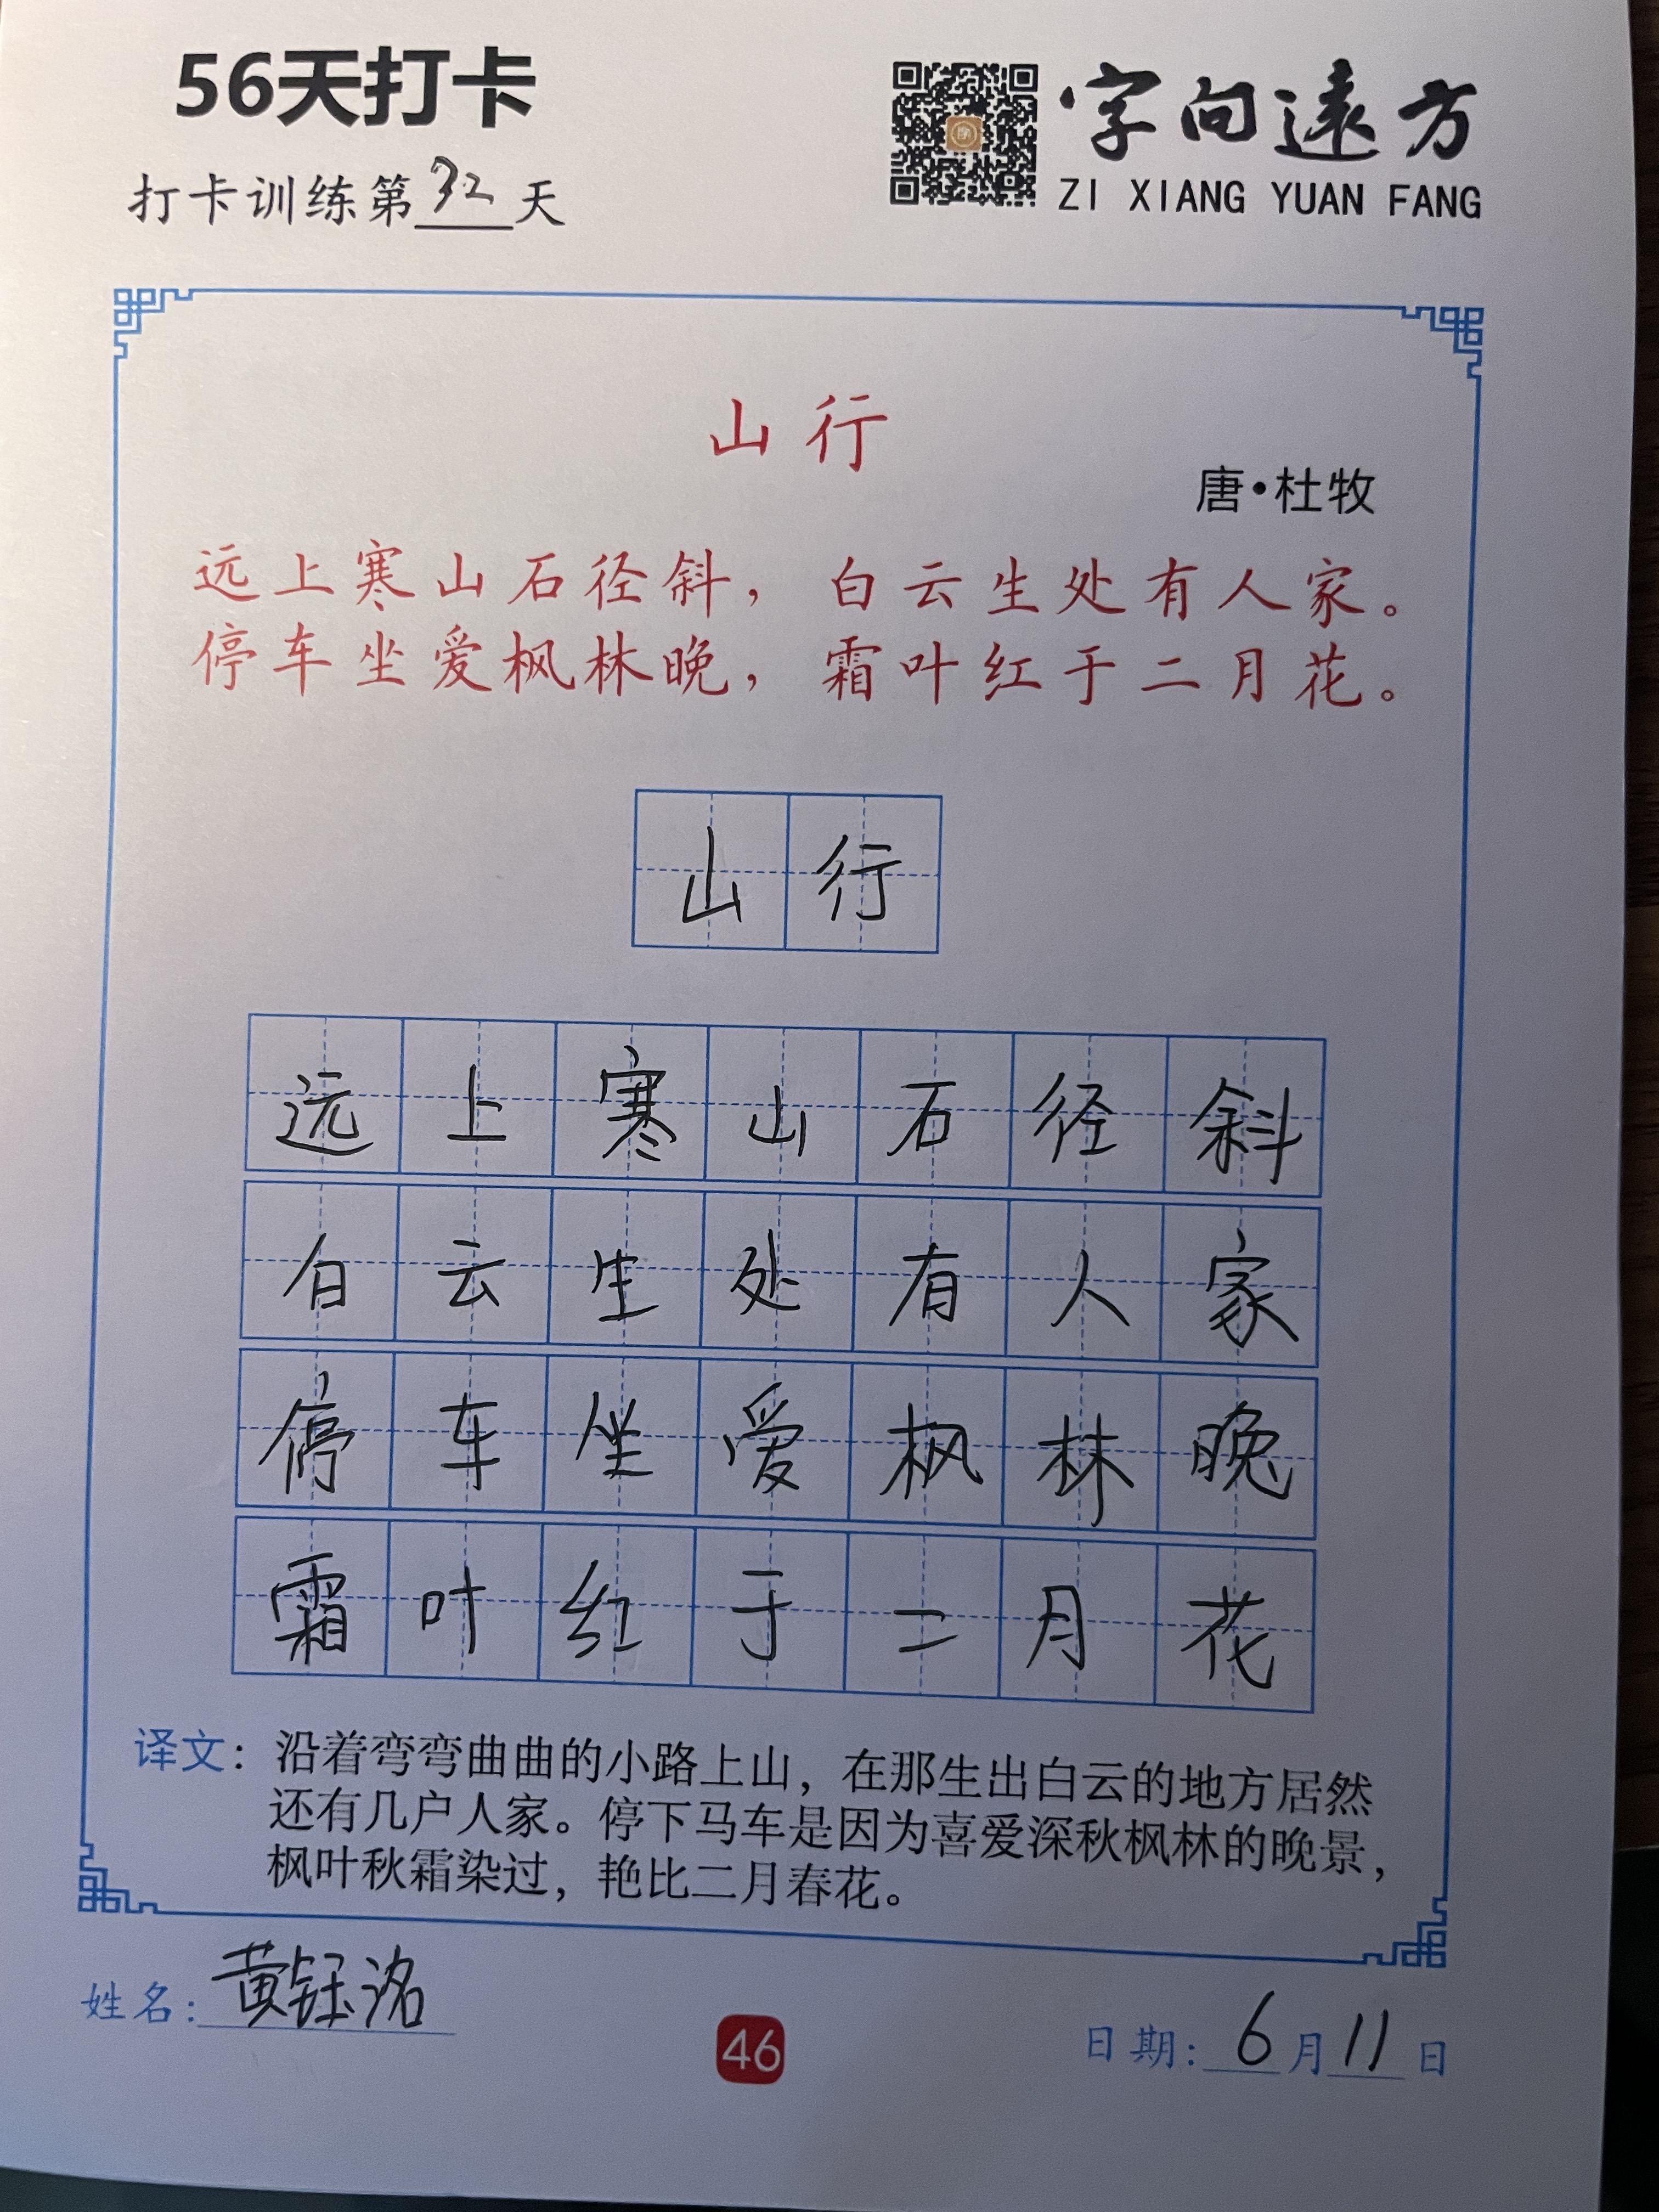 56天打卡
打卡训练第32天
字向遠方
ZI XIANG YUAN FANG
山行
唐•杜牧
远上寒山石径斜，白云生处有人家。
停车坐爱枫林晚，霜叶红于二月花。
山行
远上寒山石径斜
白云生处有人家
停车坐爱枫林晚
霜叶红于二月花
译文：沿着弯弯曲曲的小路上山，在那生出白云的地方居然
还有几户人家。停下马车是因为喜爱深秋枫林的晚景，
枫叶秋霜染过，艳比二月春花。
姓名:黄钰洺
46
日期:6月11日